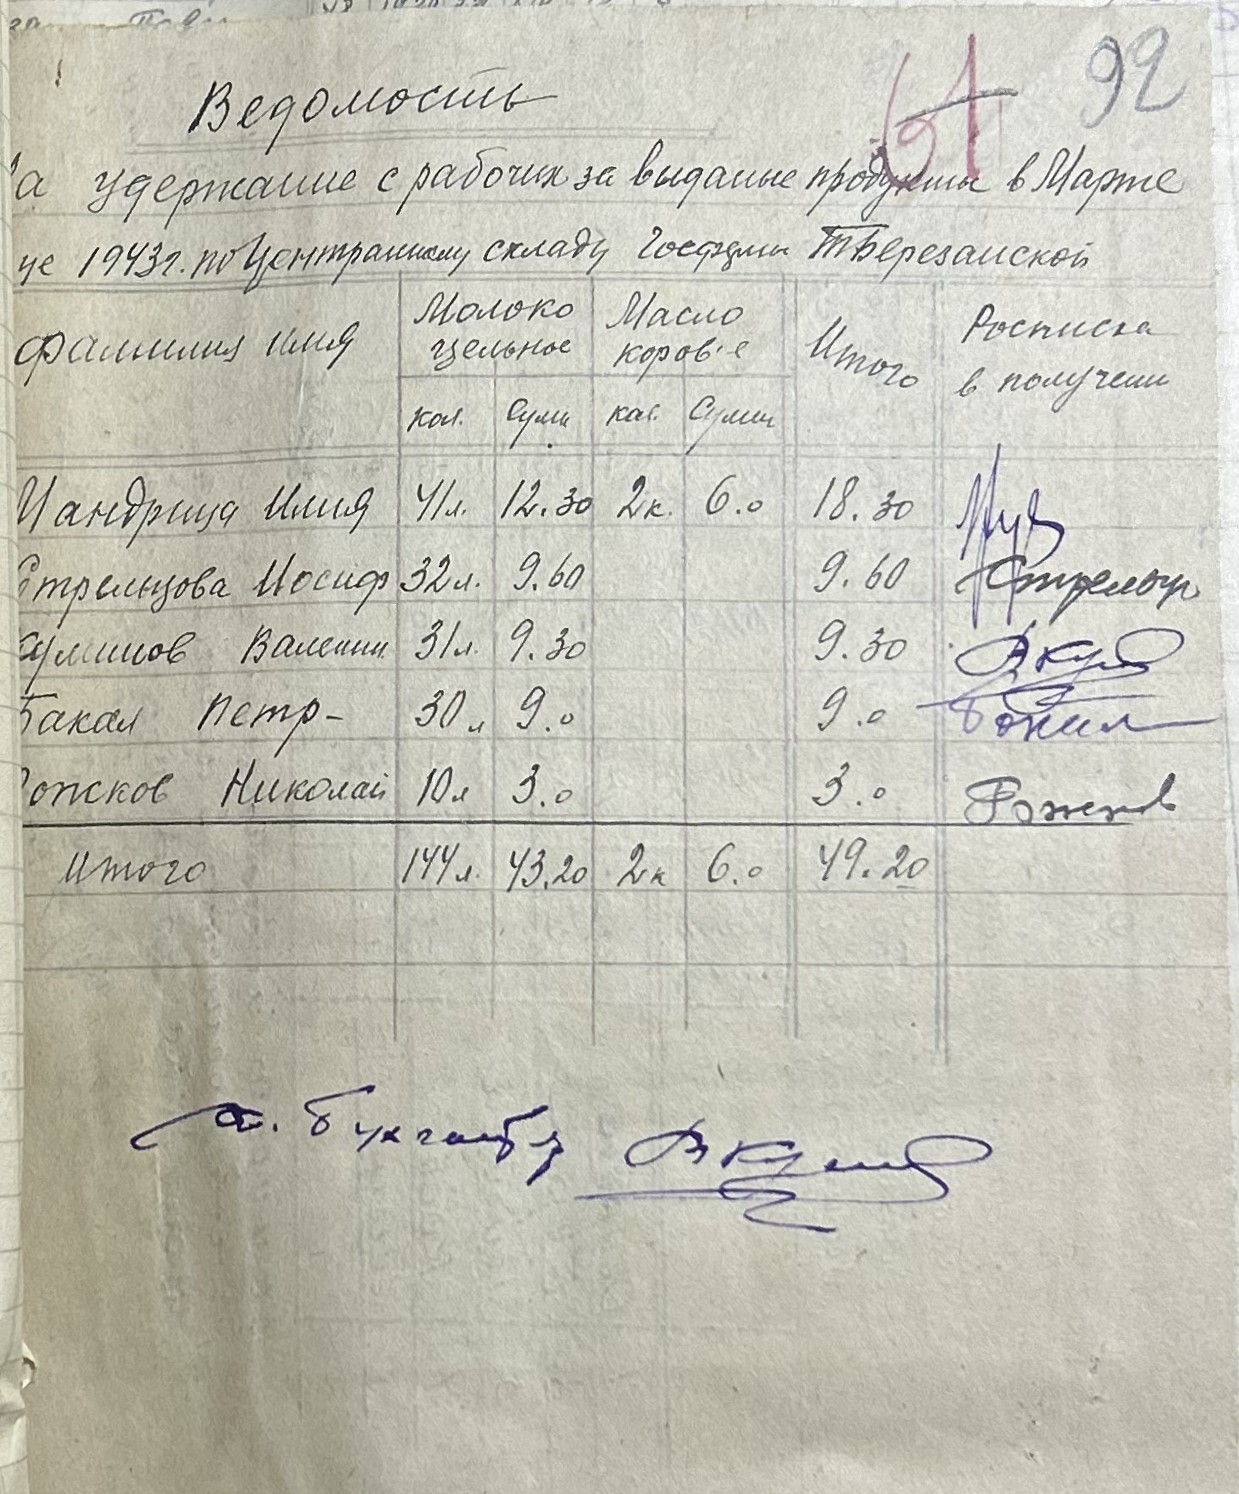 92
Ведомость
На удержание с рабочих за выданые продукты в Марте
це 1943г. по Центральному складу Госфермы Тберезанской
Фамилия Имя | Молоко цельное | Масло коров-е | Итого | Росписка в получени
кол. | Сумм | кол. | Сумм
Мандрица Илия 41л. 12.30 2к. 6.0 18.30
Стрельцова Иосиф 32л. 9.60 9.60 Стрельцо
Кулишов Валентин 31л. 9.30 9.30 В Кул
Бакал Петр- 30л 9.0 9.0 Бакал
Рожков Николай 10л 3.0 3.0 Рожков
Итого 144л. 43.20 2к 6.0 49.20
Бухгалтер